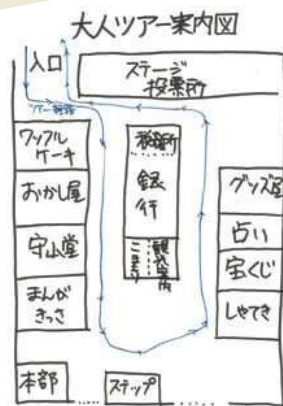 大人ツアー案内図
入口
ステージ
投票所
ツアー経路
ワッフル
ケーキ
おかし屋
守山堂
まんが
きっさ
税務所
銀
行
観光案内
こまり
グッズ屋
占い
宝くじ
しゃてき
本部
ステップ